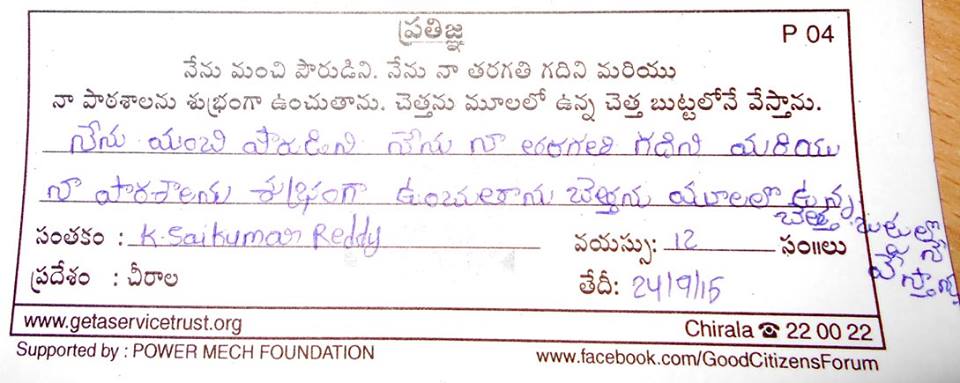 ప్రతిజ్ఞ
P 04
నేను మంచి పౌరుడిని. నేను నా తరగతి గదిని మరియు
నా పాఠశాలను శుభ్రంగా ఉంచుతాను. చెత్తను మూలలో ఉన్న చెత్త బుట్టలోనే వేస్తాను.
నేను మంచి పౌరుడిని నేను నా తరగతి గదిని మరియు
నా పాఠశాలను శుభ్రంగా ఉంచుతాను చెత్తను మూలలో ఉన్న
చెత్త బుతులో
నే
వేస్తాను
సంతకం : K. Saikumar Reddy వయస్సు: 12 సం॥లు
ప్రదేశం : చీరాల తేదీ: 24/9/15
www.getaservicetrust.org Chirala ☎ 22 00 22
Supported by : POWER MECH FOUNDATION www.facebook.com/GoodCitizensForum